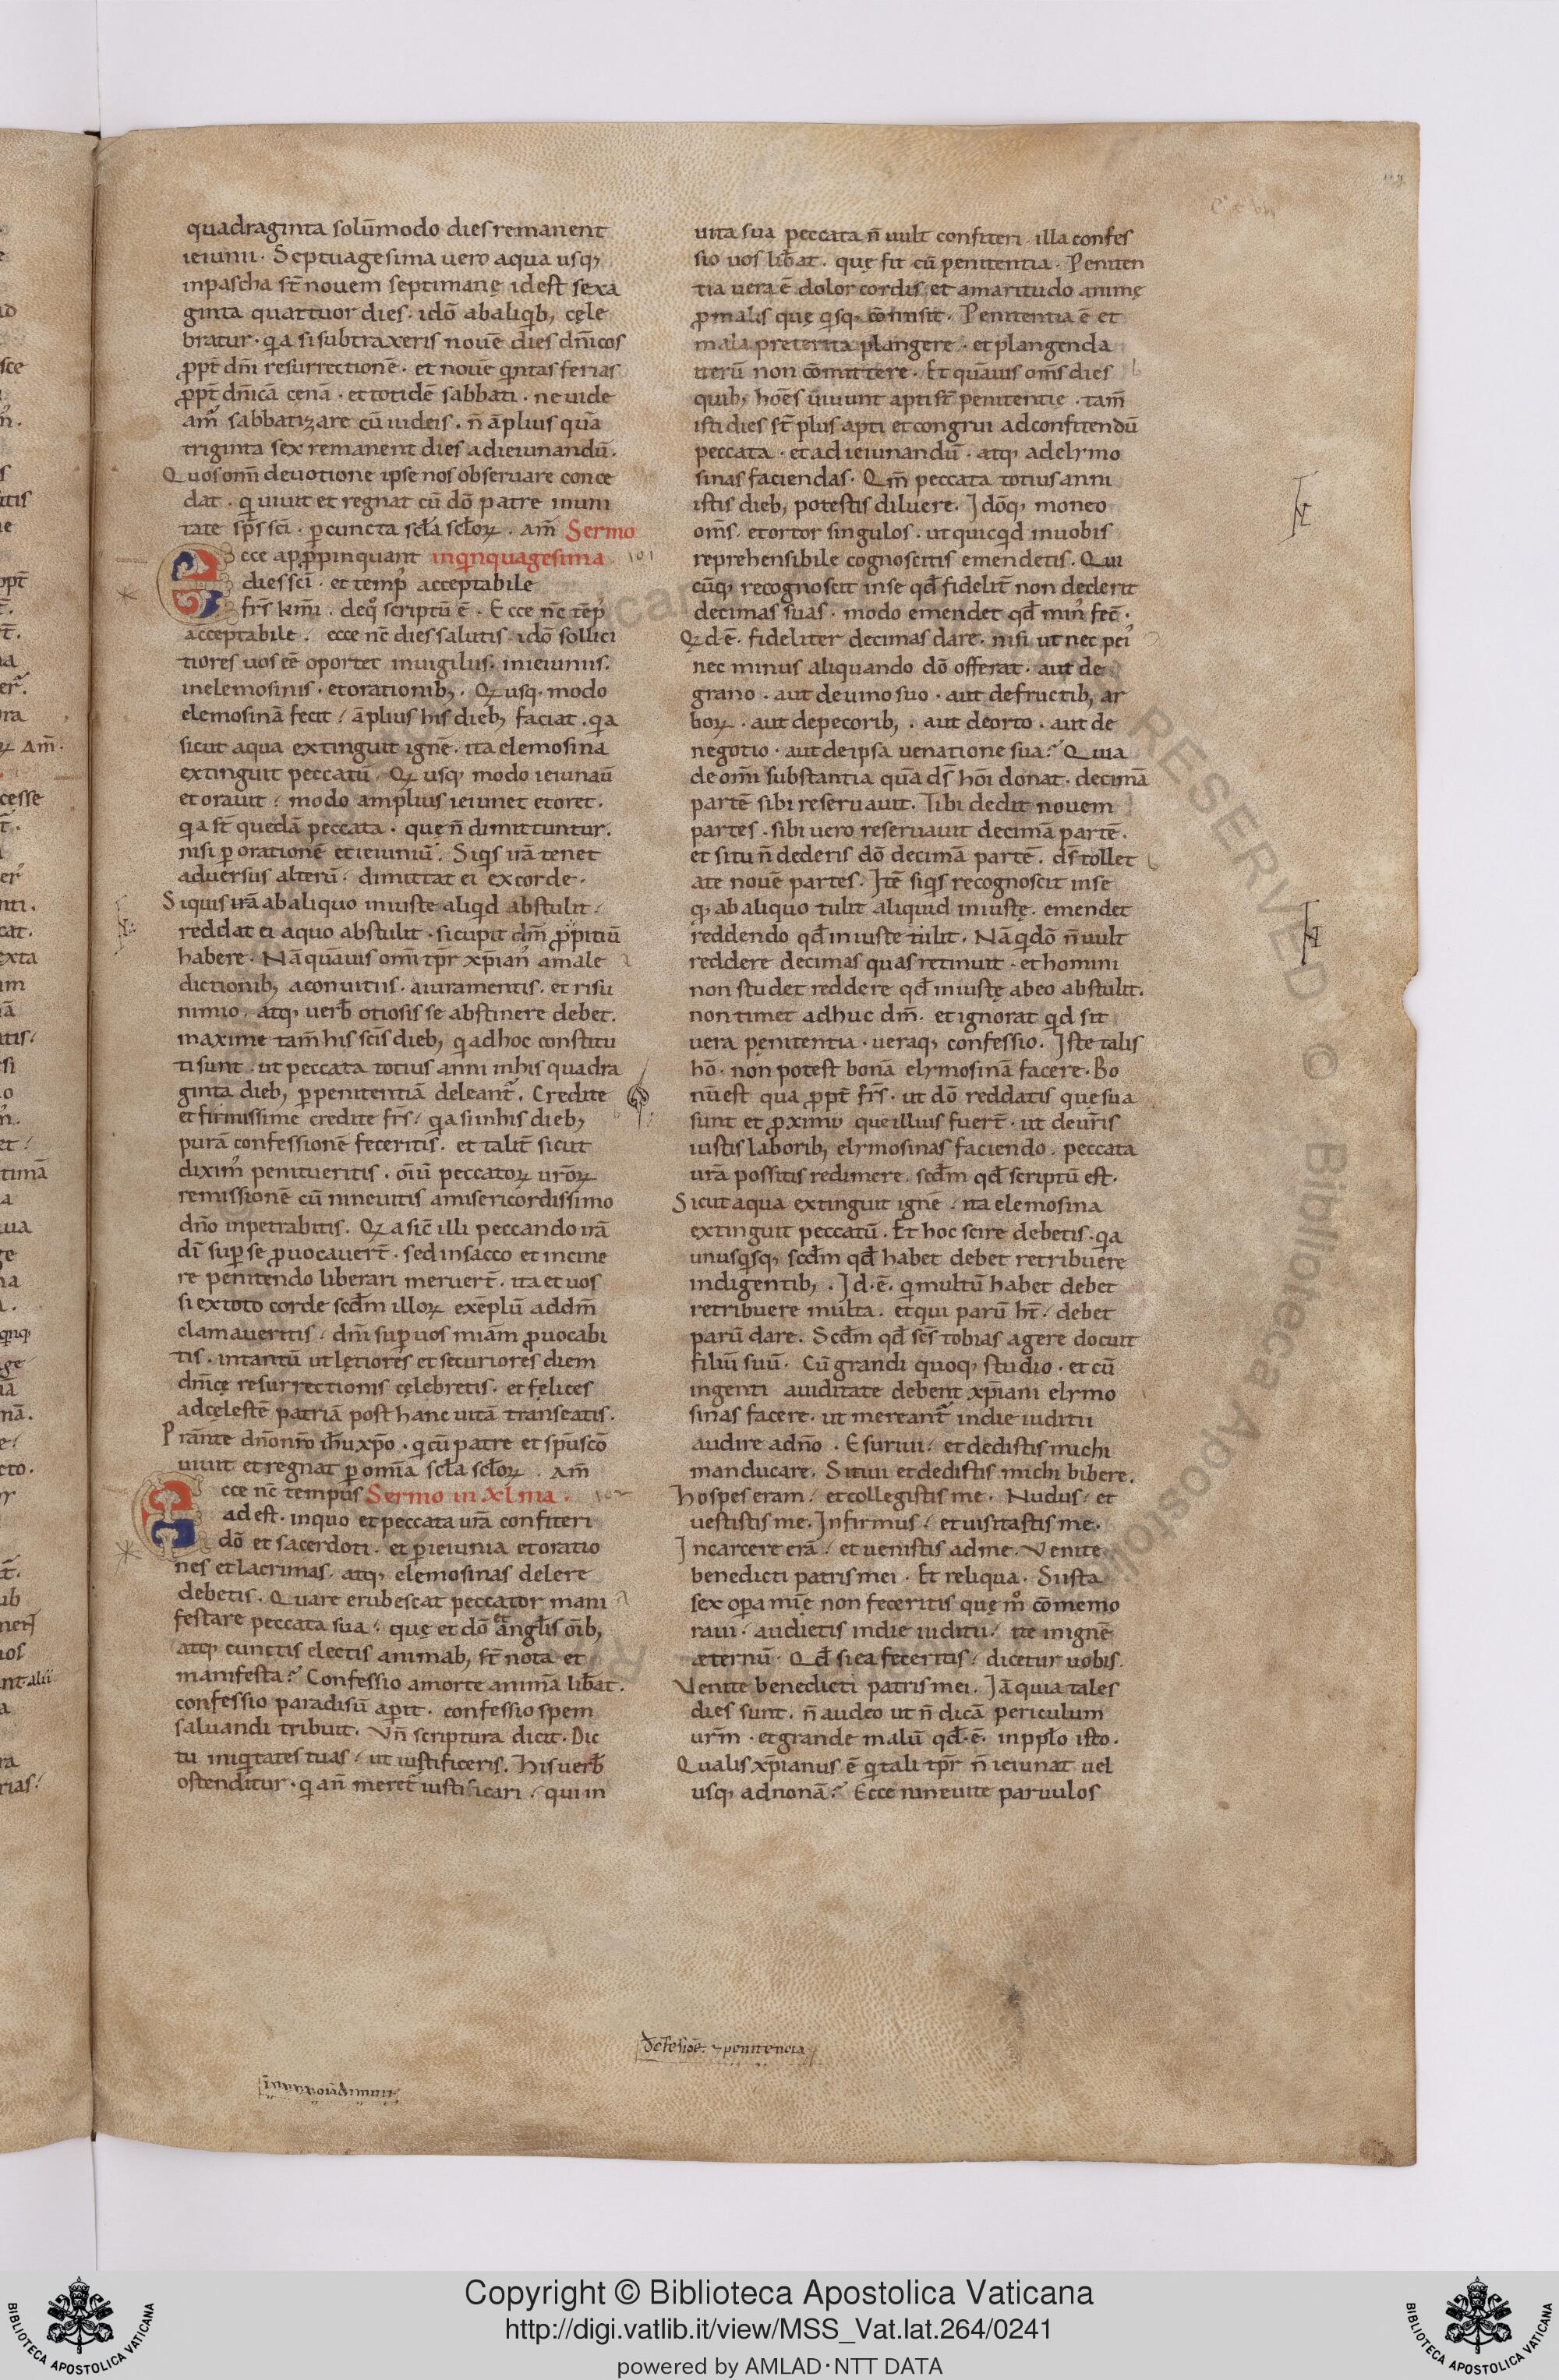 quadraginta solũmodo dies remanent
ieiunii. Septuagesima uero aqua usq;
inpascha st̄ nouem septimanę idest sexa
ginta quattuor dies. idõ abaliqib; cęle
bratur. qia sisubtraxeris nouẽ dies dñicos
ꝓpt̄ dñi resurrectionẽ. et nouẽ qintas ferias
ꝓpt̄ dñicã cenã. et totidẽ sabbati. ne uide
am᷒ sabbatizare cũ iudeis. ñ ãplius quã
triginta sex remanent dies adieiunandũ.
Quos om̄i deuotione ipse nos obseruare conce
dat. qi uiuit et regnat cũ dõ patre inuni
tate sp̄s sc̄i. ꝑ cuncta scła scłoꝝ. am̄ Sermo
Ecce apꝓpinquant inqinquagesima
dies sc̄i. et temp᷒ acceptabile
fr̄s kmī. deq̊ scriptũ ẽ. Ecce nc̄ tẽp᷒
acceptabile. ecce nc̄ dies salutis. idõ sollici
tiores uos eẽ oportet inuigiliis. inieiuniis.
inelemosinis. et orationib;. Qꝫ usq; modo
elemosinã fecit / ãplius his dieb; faciat. qia
sicut aqua extinguit ignẽ. ita elemosina
extinguit peccatũ. Qꝫ usq; modo ieiunaũ
et orauit / modo amplius ieiunet et oret.
qia st̄ quedã peccata. que ñ dimittuntur.
nisi ꝑ orationẽ et ieiuniũ. Siqis irã tenet
aduersus alterũ. dimittat ei excorde.
Siquis irã abaliquo iniuste aliqid abstulit /
reddat ei aquo abstulit. si cupit dm̄ ꝓpitiũ
habere. Nã quãuis om̄i tp̄r xp̄ian᷒ amale
dictionib; aconuitiis. aiuramentis. et risu
nimio. atq; uerb̄ otiosis se abstinere debet.
maxime tam̄ his sc̄is dieb; qi adhoc constitu
ti sunt. ut peccata totius anni inhis quadra
ginta dieb; ꝑ penitentiã deleant᷑. Credite
et firmissime credite fr̄s / qia si inhis dieb;
purã confessionẽ feceritis. et talit̄ sicut
dixim᷒ penitueritis. oĩũ peccatoꝝ ur̄oꝝ
remissionẽ cũ nineuitis amisericordissimo
dño inpetrabitis. Qꝫ a sic̄ illi peccando irã
dī suꝑ se ꝓuocauert̄. sed insacco et incine
re penitendo liberari meruert̄. ita et uos
si extoto corde scd̄m illoꝝ exẽplũ addm̄
clamaueritis / dm̄i suꝑ uos miam̄ ꝓuocabi
tis. intantũ ut lętiores et securiores diem
dñicę resurrectionis cęlebretis. et felices
adcęlestẽ patriã post hanc uitã transeatis.
Prãnte dño nr̄o ih̄u xp̄o. qi cũ patre et sp̄u sc̄o
uiuit et regnat ꝑ om̄ia scła scłoꝝ. am̄
Ecce nc̄ tempus Sermo in xl ma.
adest. inquo et peccata ur̄a confiteri
dõ et sacerdoti. et ꝑ ieiunia et oratio
nes et lacrimas. atq; elemosinas delere
debetis. Quare erubescat peccator mani
festare peccata sua / quę et dõ et angłis oĩb;
atq; cunctis electis animab; st̄ nota et
manifesta? Confessio amorte animã lib̄at.
confessio paradisũ aꝑit. confessio spem
saluandi tribuit. Vñ scriptura dicit. Dic
tu iniqitates tuas / ut iustificeris. His uerb̄
ostenditur. qi añ meret᷑ iustificari / qui in
uita sua peccata ñ uult confiteri. illa confes
sio uos lib̄at. quę fit cũ penitentia. Peniten
tia uera ẽ dolor cordis et amaritudo animę
ꝓ malis quę qisq; cõmisit. Penitentia ẽ et
mala preterita plangere. et plangenda
iterũ non cõmittere. Et quãuis om̄s dies
quib; hoẽs uiuunt apti st̄ penitentie. tam̄
isti dies st̄ plus apti et congrui adconfitendũ
peccata. et ad ieiunandũ. atq; adelymo
sinas faciendas. Qm̄ peccata totius anni
istis dieb; potestis diluere. Idõq; moneo
om̄s. et ortor singulos. ut quicqid inuobis
reprehensibile cognoscitis emendetis. Qui
cũq; recognoscit inse qd̄ fidelit̄ non dederit
decimas suas. modo emendet qd̄ min᷒ fec̄.
Qꝫ d. ẽ. fideliter decimas dare. nisi ut nec pei᷒
nec minus aliquando dõ offerat. aut de
grano. aut de uino suo. aut de fructib; ar
boꝝ. aut depecorib;. aut deorto. aut de
negotio. aut deipsa uenatione sua? Quia
de om̄i substantia quã ds̄ hoĩ donat. decimã
partẽ sibi reseruauit. Tibi dedit nouem
partes. sibi uero reseruauit decimã partẽ.
et si tu ñ dederis dõ decimã partẽ. ds̄ tollet
ate nouẽ partes. Itẽ siqis recognoscit inse
q; abaliquo tulit aliquid iniustę. emendet
reddendo qd̄ iniuste tulit. Nã qi dõ ñ uult
reddere decimas quas retinuit. et homini
non studet reddere qd̄ iniustę abeo abstulit.
non timet adhuc dm̄. et ignorat qid sit
uera penitentia. ueraq; confessio. Iste talis
hõ. non potest bonã elymosinã facere. Bo
nũ est qua ꝓpt̄ fr̄s. ut dõ reddatis que sua
sunt et ꝓximo que illius fuert̄. ut deur̄is
iustis laborib; elymosinas faciendo. peccata
ur̄a possitis redimere. scd̄m qd̄ scriptũ est.
Sicut aqua extinguit ignẽ / ita elemosina
extinguit peccatũ. Et hoc scire debetis. qia
unusqisq; scd̄m qd̄ habet debet retribuere
indigentib;. Id. ẽ. qi multũ habet debet
retribuere multa. et qui parũ ht̄ / debet
parũ dare. Scd̄m qd̄ sc̄s tobias agere docuit
filiũ suũ. Cũ grandi quoq; studio. et cũ
ingenti auiditate debent xp̄iani elymo
sinas facere. ut mereant᷑ indie iuditii
audire adño. Esuriui / et dedistis michi
manducare. Sitiui et dedistis michi bibere.
Hospes eram / et collegistis me. Nudus / et
uestistis me. Infirmus / et uisitastis me.
Incarcere erã / et uenistis adme. Venite
benedicti patris mei. Et reliqua. Si ista
sex oꝑa mīe non feceritis quę m̊ cõmemo
raui / audietis indie iuditii / ite inignẽ
æternũ. Qd̄ si ea feceritis / dicetur uobis.
Venite benedicti patris mei. Iã quia tales
dies sunt. ñ audeo ut ñ dicã periculum
ur̄m. et grande malũ qd̄. ẽ. inpp̄lo isto.
Qualis xp̄ianus ẽ qi tali tp̄r ñ ieiunat uel
usq; adnonã? Ecce nineuite paruulos
penitencia
Copyright © Biblioteca Apostolica Vaticana
http://digi.vatlib.it/view/MSS_Vat.lat.264/0241
powered by AMLAD·NTT DATA
BIBLIOTECA APOSTOLICA VATICANA
BIBLIOTECA APOSTOLICA VATICANA